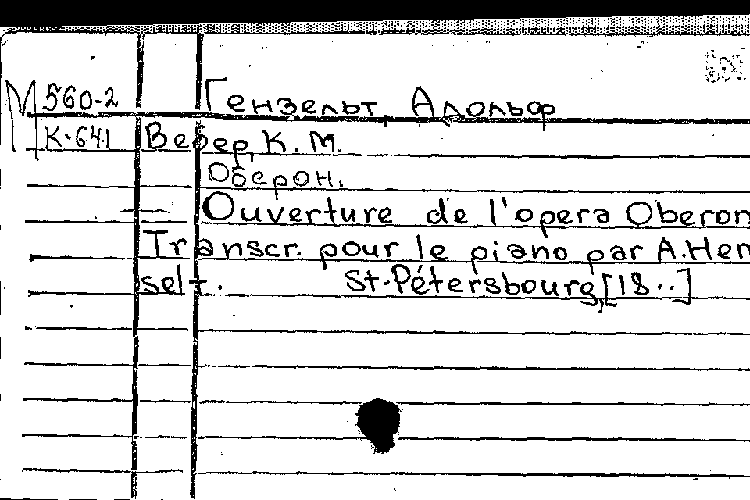 М 560-2 Гензельт, Адольф
К-641 Вебер, К. М.
Оберон.
— Ouverture de l'opera Oberon
Transcr. pour le piano par A. Hen
selt. St-Pétersbourg, [18..]